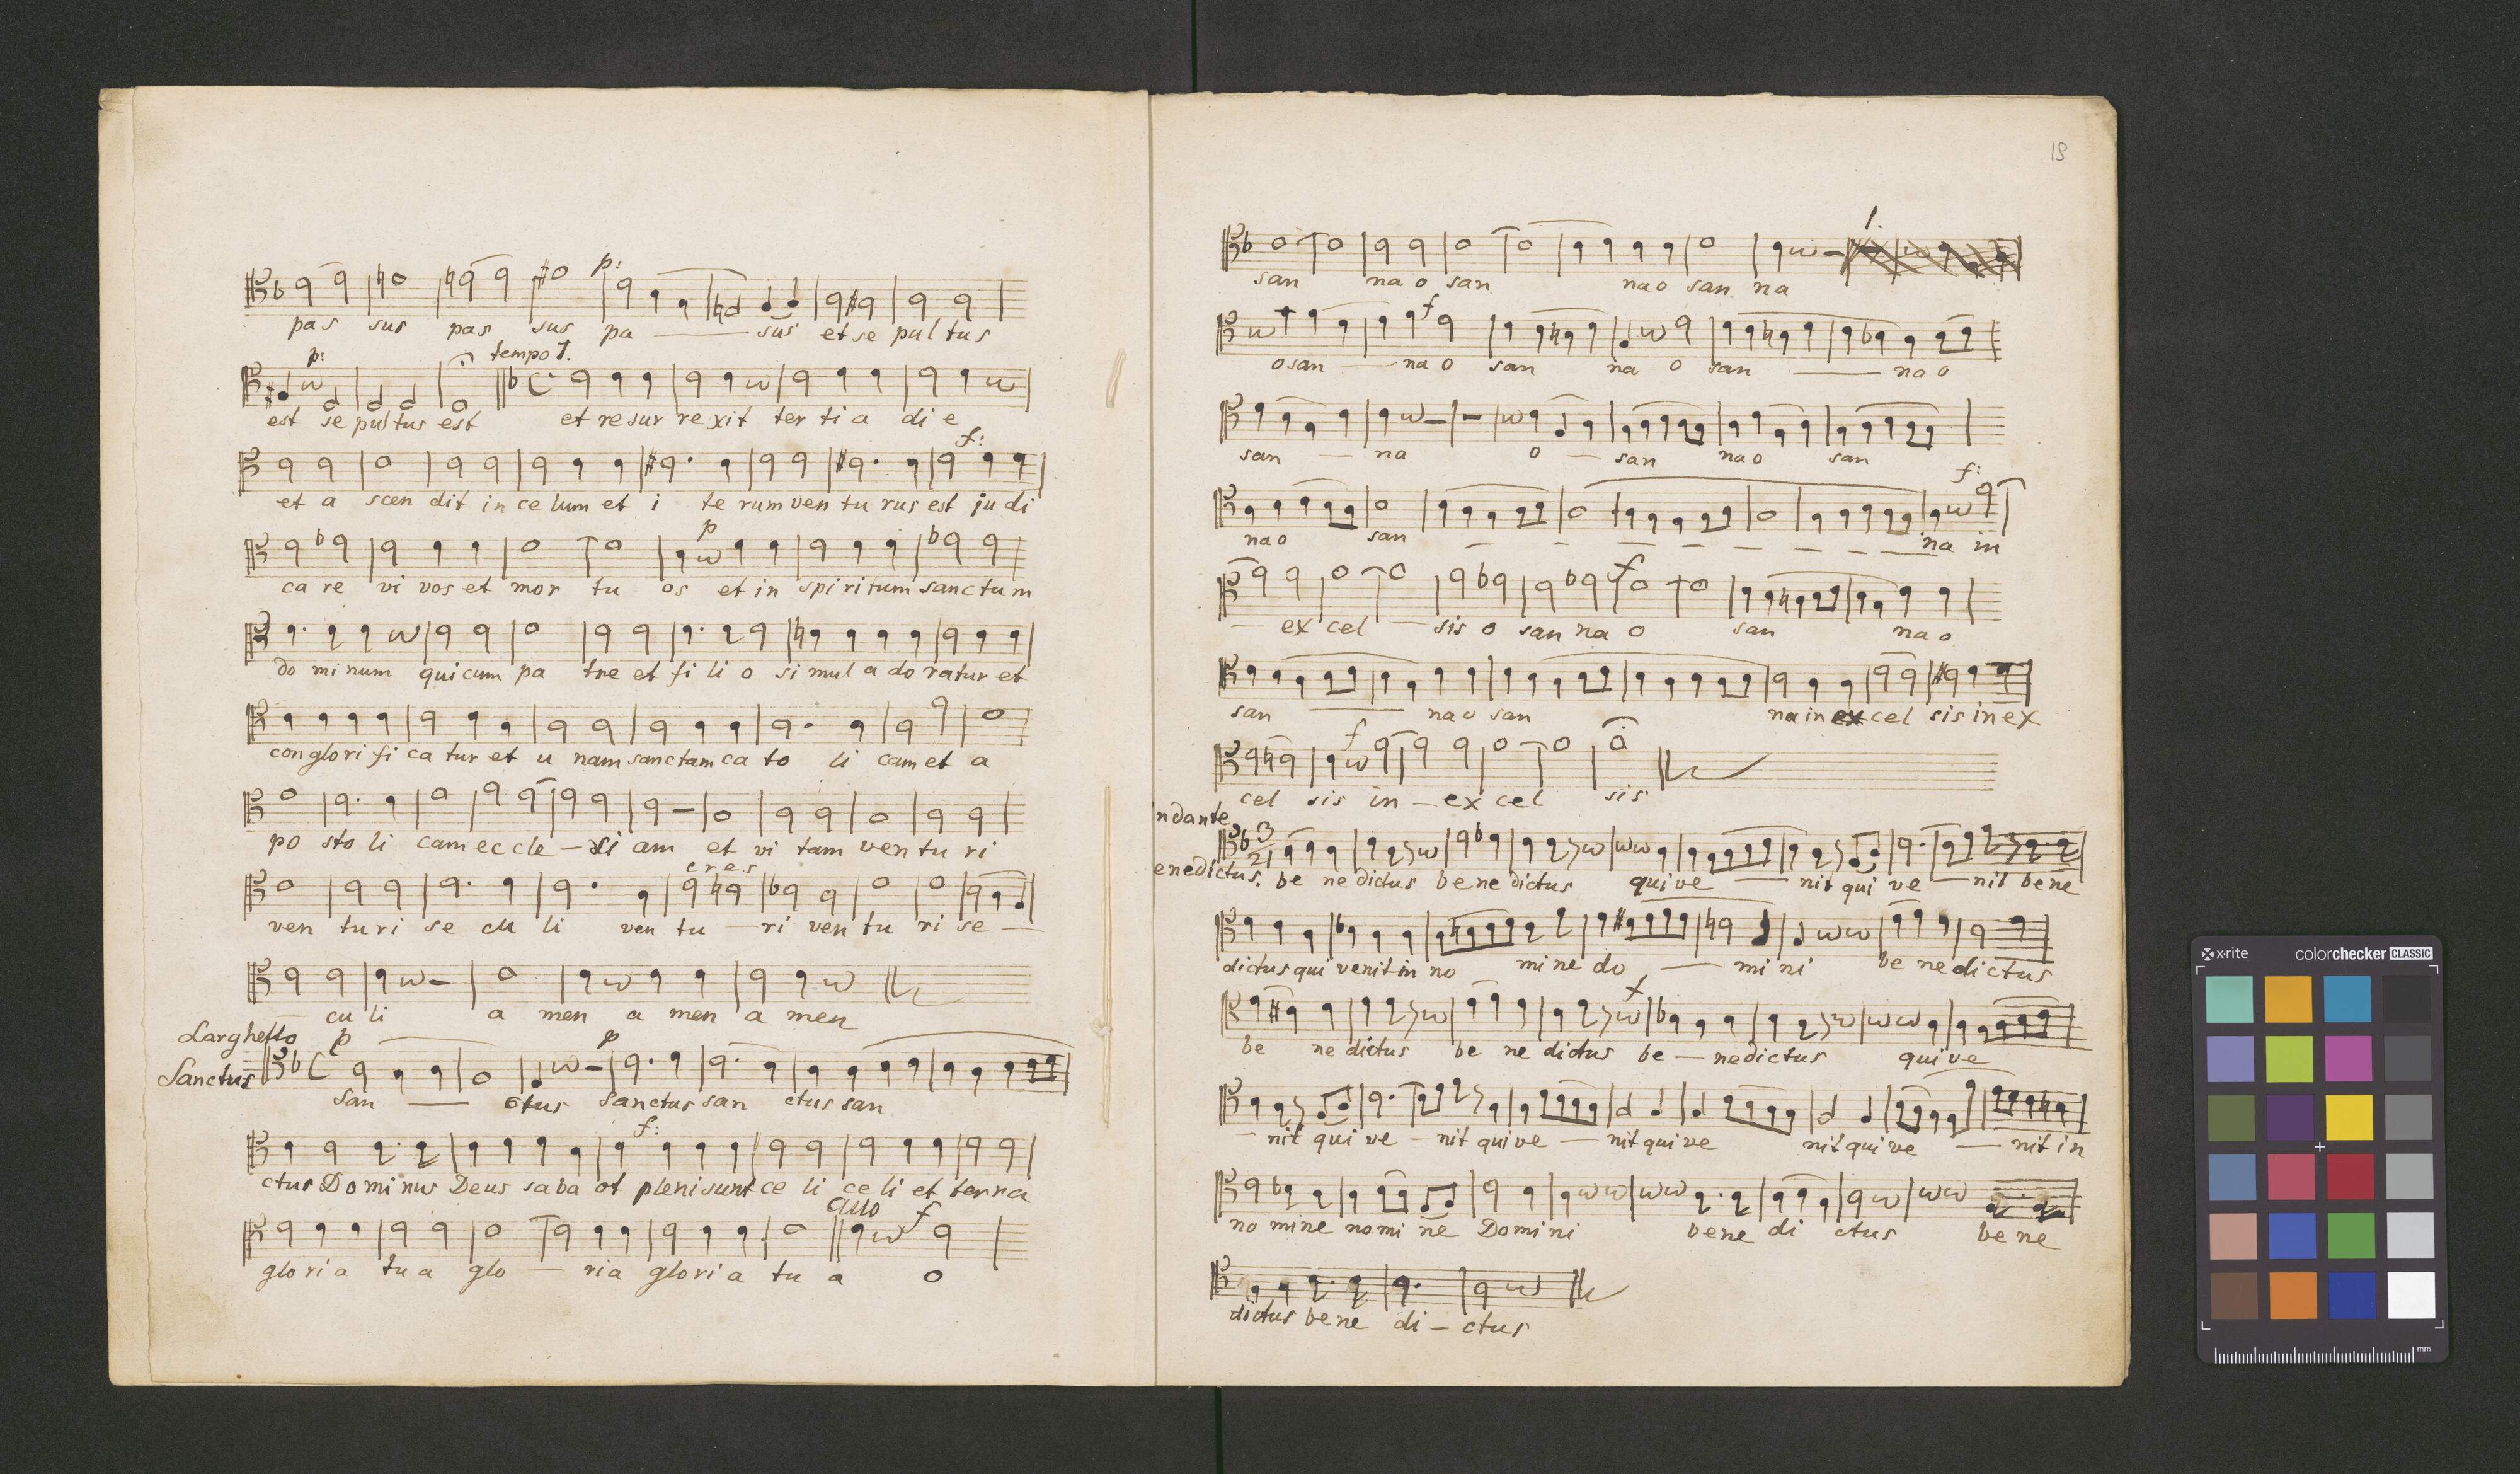 p:
pas sus pas sus pa sus et se pul tus
p: tempo 1.
est se pul tus est et re sur re xit ter ti a di e
f:
et a scen dit in ce lum et i te rum ven tu rus est ju di
p
ca re vi vos et mor tu os et in spi ri tum sanc tum
do mi num qui cum pa tre et fi li o si mul a do ratur et
con glo ri fi ca tur et u nam sanctam ca to li cam et a
po sto li cam ec cle - si am et vi tam ven tu ri
cres
ven tu ri se cu li ven tu - ri ven tu ri se -
cu li a men a men a men
Larghetto p p
Sanctus
San — ctus Sanctus san ctus san
f:
ctus Do mi nus Deus sa ba ot pleni sunt ce li ce li et terra
Allo f
glo ri a tu a glo — ria glo ri a tu a o
19
1.
san na o san na o san na
f
o san — na o san na o san — na o
san — na o — san na o san
f:
na o san — na in
f
— ex cel — sis o san na o san na o
san — na o san na in ex cel sis in ex
f
cel sis in — ex cel sis
ndante
3
2
enedictus. be ne dictus be ne dictus qui ve — nit qui ve — nit bene
dictus qui venit in no mi ne do — mi ni be ne dictus
f
be ne dictus be ne dictus be — ne dictus qui ve
— nit qui ve — nit qui ve — nit qui ve nit qui ve — nit in
no mi ne no mi ne Domi ni be ne di ctus be ne
dictus be ne di — ctus
x-rite colorchecker CLASSIC
mm